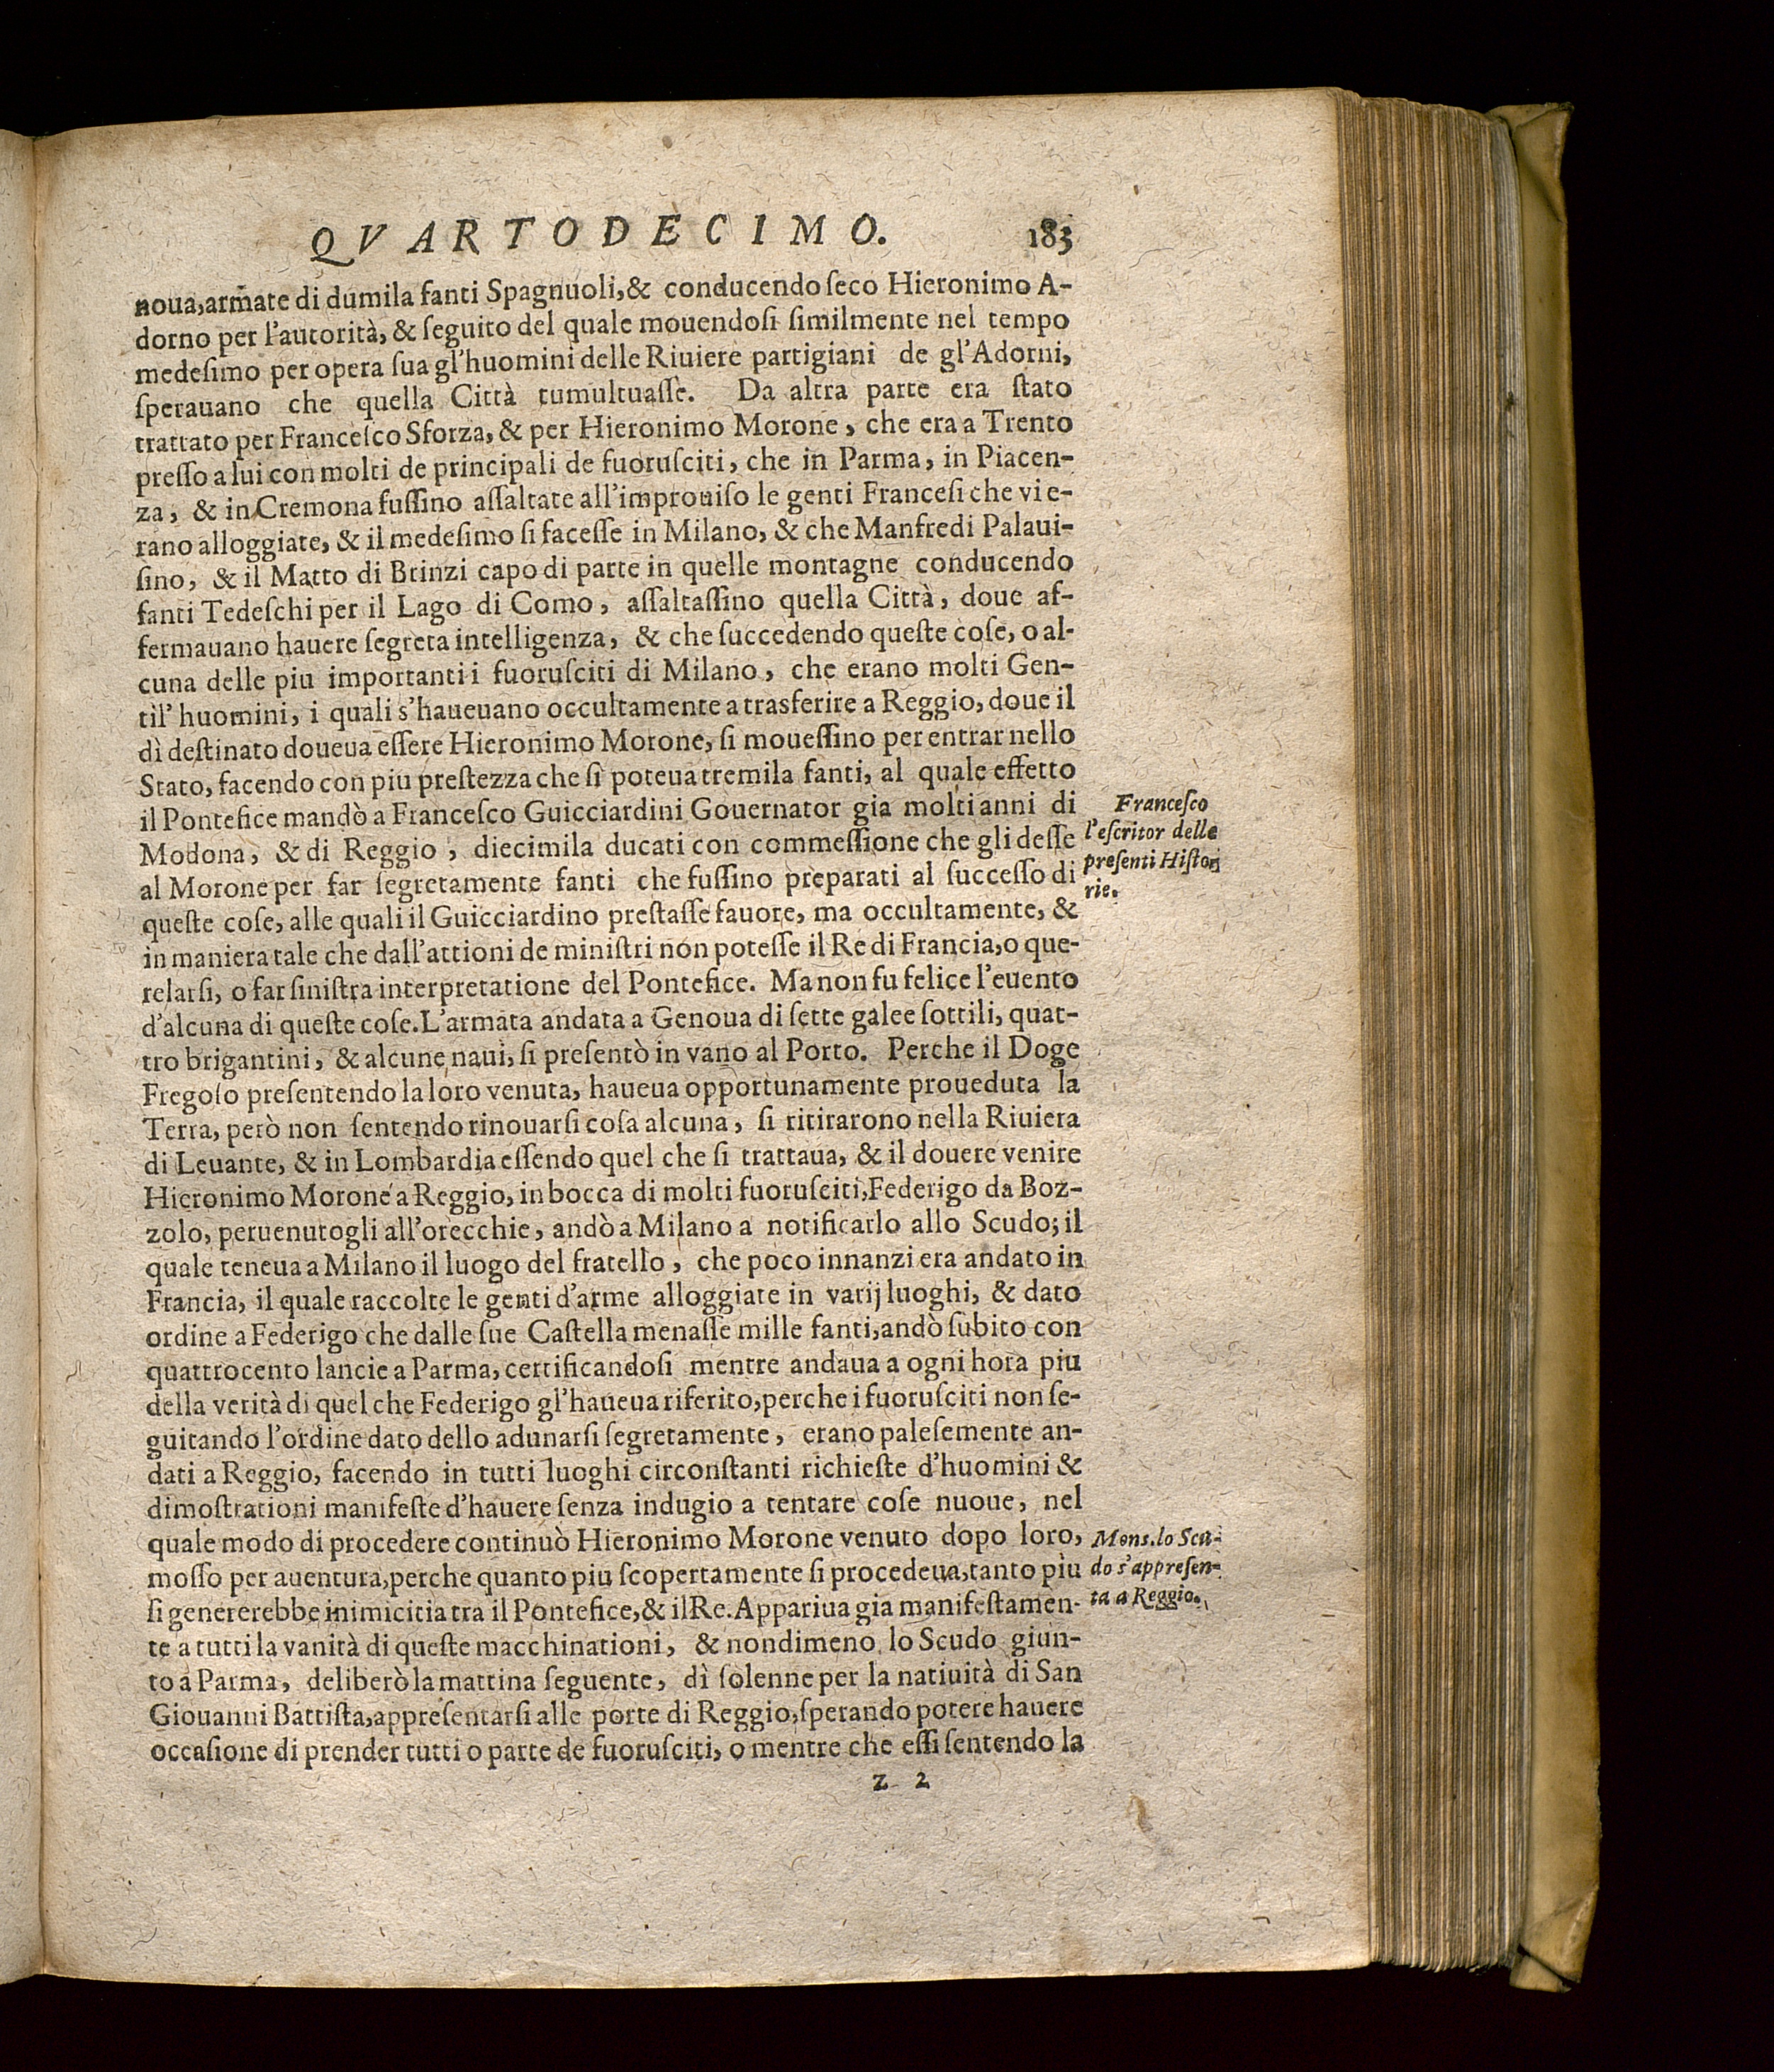 QVARTODECIMO. 183
noua, armate di dumila fanti Spagnuoli, & conducendo ſeco Hieronimo A-
dorno per l'autorità, & ſeguito del quale mouendoſi ſimilmente nel tempo
medeſimo per opera ſua gl'huomini delle Riuiere partigiani de gl'Adorni,
ſperauano che quella Città tumultuaſſe. Da altra parte era ſtato
trattato per Franceſco Sforza, & per Hieronimo Morone, che era a Trento
preſſo a lui con molti de principali de fuoruſciti, che in Parma, in Piacen-
za, & in Cremona fuſſino aſſaltate all'improuiſo le genti Franceſi che vi e-
rano alloggiate, & il medeſimo ſi faceſſe in Milano, & che Manfredi Palaui-
ſino, & il Matto di Brinzi capo di parte in quelle montagne conducendo
fanti Tedeſchi per il Lago di Como, aſſaltaſſino quella Città, doue af-
fermauano hauere ſegreta intelligenza, & che ſuccedendo queſte coſe, o al-
cuna delle piu importanti i fuoruſciti di Milano, che erano molti Gen-
til' huomini, i quali s'haueuano occultamente a trasferire a Reggio, doue il
dì deſtinato doueua eſſere Hieronimo Morone, ſi moueſſino per entrar nello
Stato, facendo con piu preſtezza che ſi poteua tremila fanti, al quale effetto
il Pontefice mandò a Franceſco Guicciardini Gouernator gia molti anni di
Modona, & di Reggio, diecimila ducati con commeſſione che gli deſſe
al Morone per far ſegretamente fanti che fuſſino preparati al ſucceſſo di
queſte coſe, alle quali il Guicciardino preſtaſſe fauore, ma occultamente, &
in maniera tale che dall'attioni de miniſtri non poteſſe il Re di Francia, o que-
relarſi, o far ſiniſtra interpretatione del Pontefice. Ma non fu felice l'euento
d'alcuna di queſte coſe. L'armata andata a Genoua di ſette galee ſottili, quat-
tro brigantini, & alcune naui, ſi preſentò in vano al Porto. Perche il Doge
Fregoſo preſentendo la loro venuta, haueua opportunamente proueduta la
Terra, però non ſentendo rinouarſi coſa alcuna, ſi ritirarono nella Riuiera
di Leuante, & in Lombardia eſſendo quel che ſi trattaua, & il douere venire
Hieronimo Morone a Reggio, in bocca di molti fuoruſciti, Federigo da Boz-
zolo, peruenutogli all'orecchie, andò a Milano a notificarlo allo Scudo; il
quale teneua a Milano il luogo del fratello, che poco innanzi era andato in
Francia, il quale raccolte le genti d'arme alloggiate in varij luoghi, & dato
ordine a Federigo che dalle ſue Caſtella menaſſe mille fanti, andò ſubito con
quattrocento lancie a Parma, certificandoſi mentre andaua a ogni hora piu
della verità di quel che Federigo gl'haueua riferito, perche i fuoruſciti non ſe-
guitando l'ordine dato dello adunarſi ſegretamente, erano paleſemente an-
dati a Reggio, facendo in tutti luoghi circonſtanti richieſte d'huomini &
dimoſtrationi manifeſte d'hauere ſenza indugio a tentare coſe nuoue, nel
quale modo di procedere continuò Hieronimo Morone venuto dopo loro,
moſſo per auentura, perche quanto piu ſcopertamente ſi procedeua, tanto più
ſi genererebbe inimicitia tra il Pontefice, & il Re. Appariua gia manifeſtamen-
te a tutti la vanità di queſte macchinationi, & nondimeno lo Scudo giun-
to a Parma, deliberò la mattina ſeguente, dì ſolenne per la natiuità di San
Giouanni Battiſta, appreſentarſi alle porte di Reggio, ſperando potere hauere
occaſione di prender tutti o parte de fuoruſciti, o mentre che eſſi ſentendo la
Z 2
Franceſco
l'eſcritor delle
preſenti Hiſto
rie.
Mons. lo Scu-
do s'appreſen-
ta a Reggio.